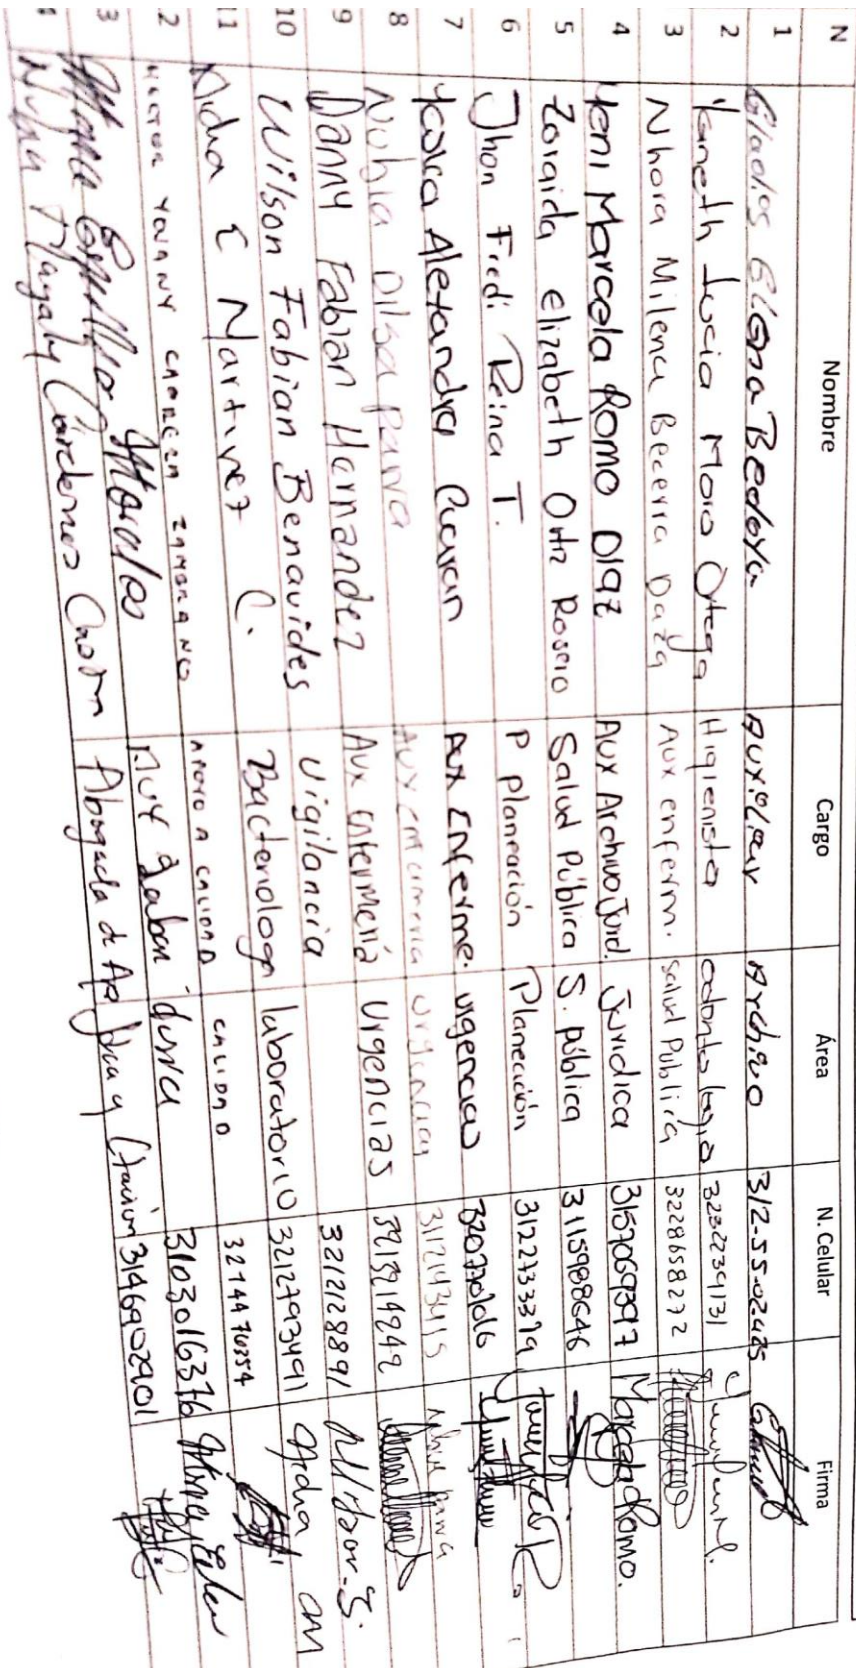 N Nombre Cargo Área N. Celular Firma
1 Gladis Elena Bedoya Auxiliar Archivo 312-55-02485
2 Yaneth Lucia Mora Ortega Higienista odontología 3232239131
3 Nhora Milena Becerra Daza Aux enferm. Salud Pública 3228658272
4 Yeni Marcela Romo Diaz Aux Archivo Jurid. Juridica 3157069397 Marcela Romo.
5 Zoraida elizabeth Ortiz Rosero Salud Pública S. pública 3115988646
6 Jhon Fredi Reina T. P planeación Planeación 3122733379
7 Yesica Alexandra Cuaran Aux Enferme. urgencias
8 Nubia Dilsa Parra Aux enfermeria urgencias 3112143415
9 Danny Fabian Hernandez Aux enfermería Urgencias 3215214242
10 Wilson Fabian Benavides Vigilancia 3212128891 Wilson
11 Nidia E Martinez C. Bacteriologa laboratorio 3212793491 Nidia
2 HECTOR YOVANY CABRERA ZAMBRANO APOYO A CALIDAD CALIDAD 3274476554
3 Morales Aux 3103016376
4 Magaly Cárdenas Abogada de 3146902901